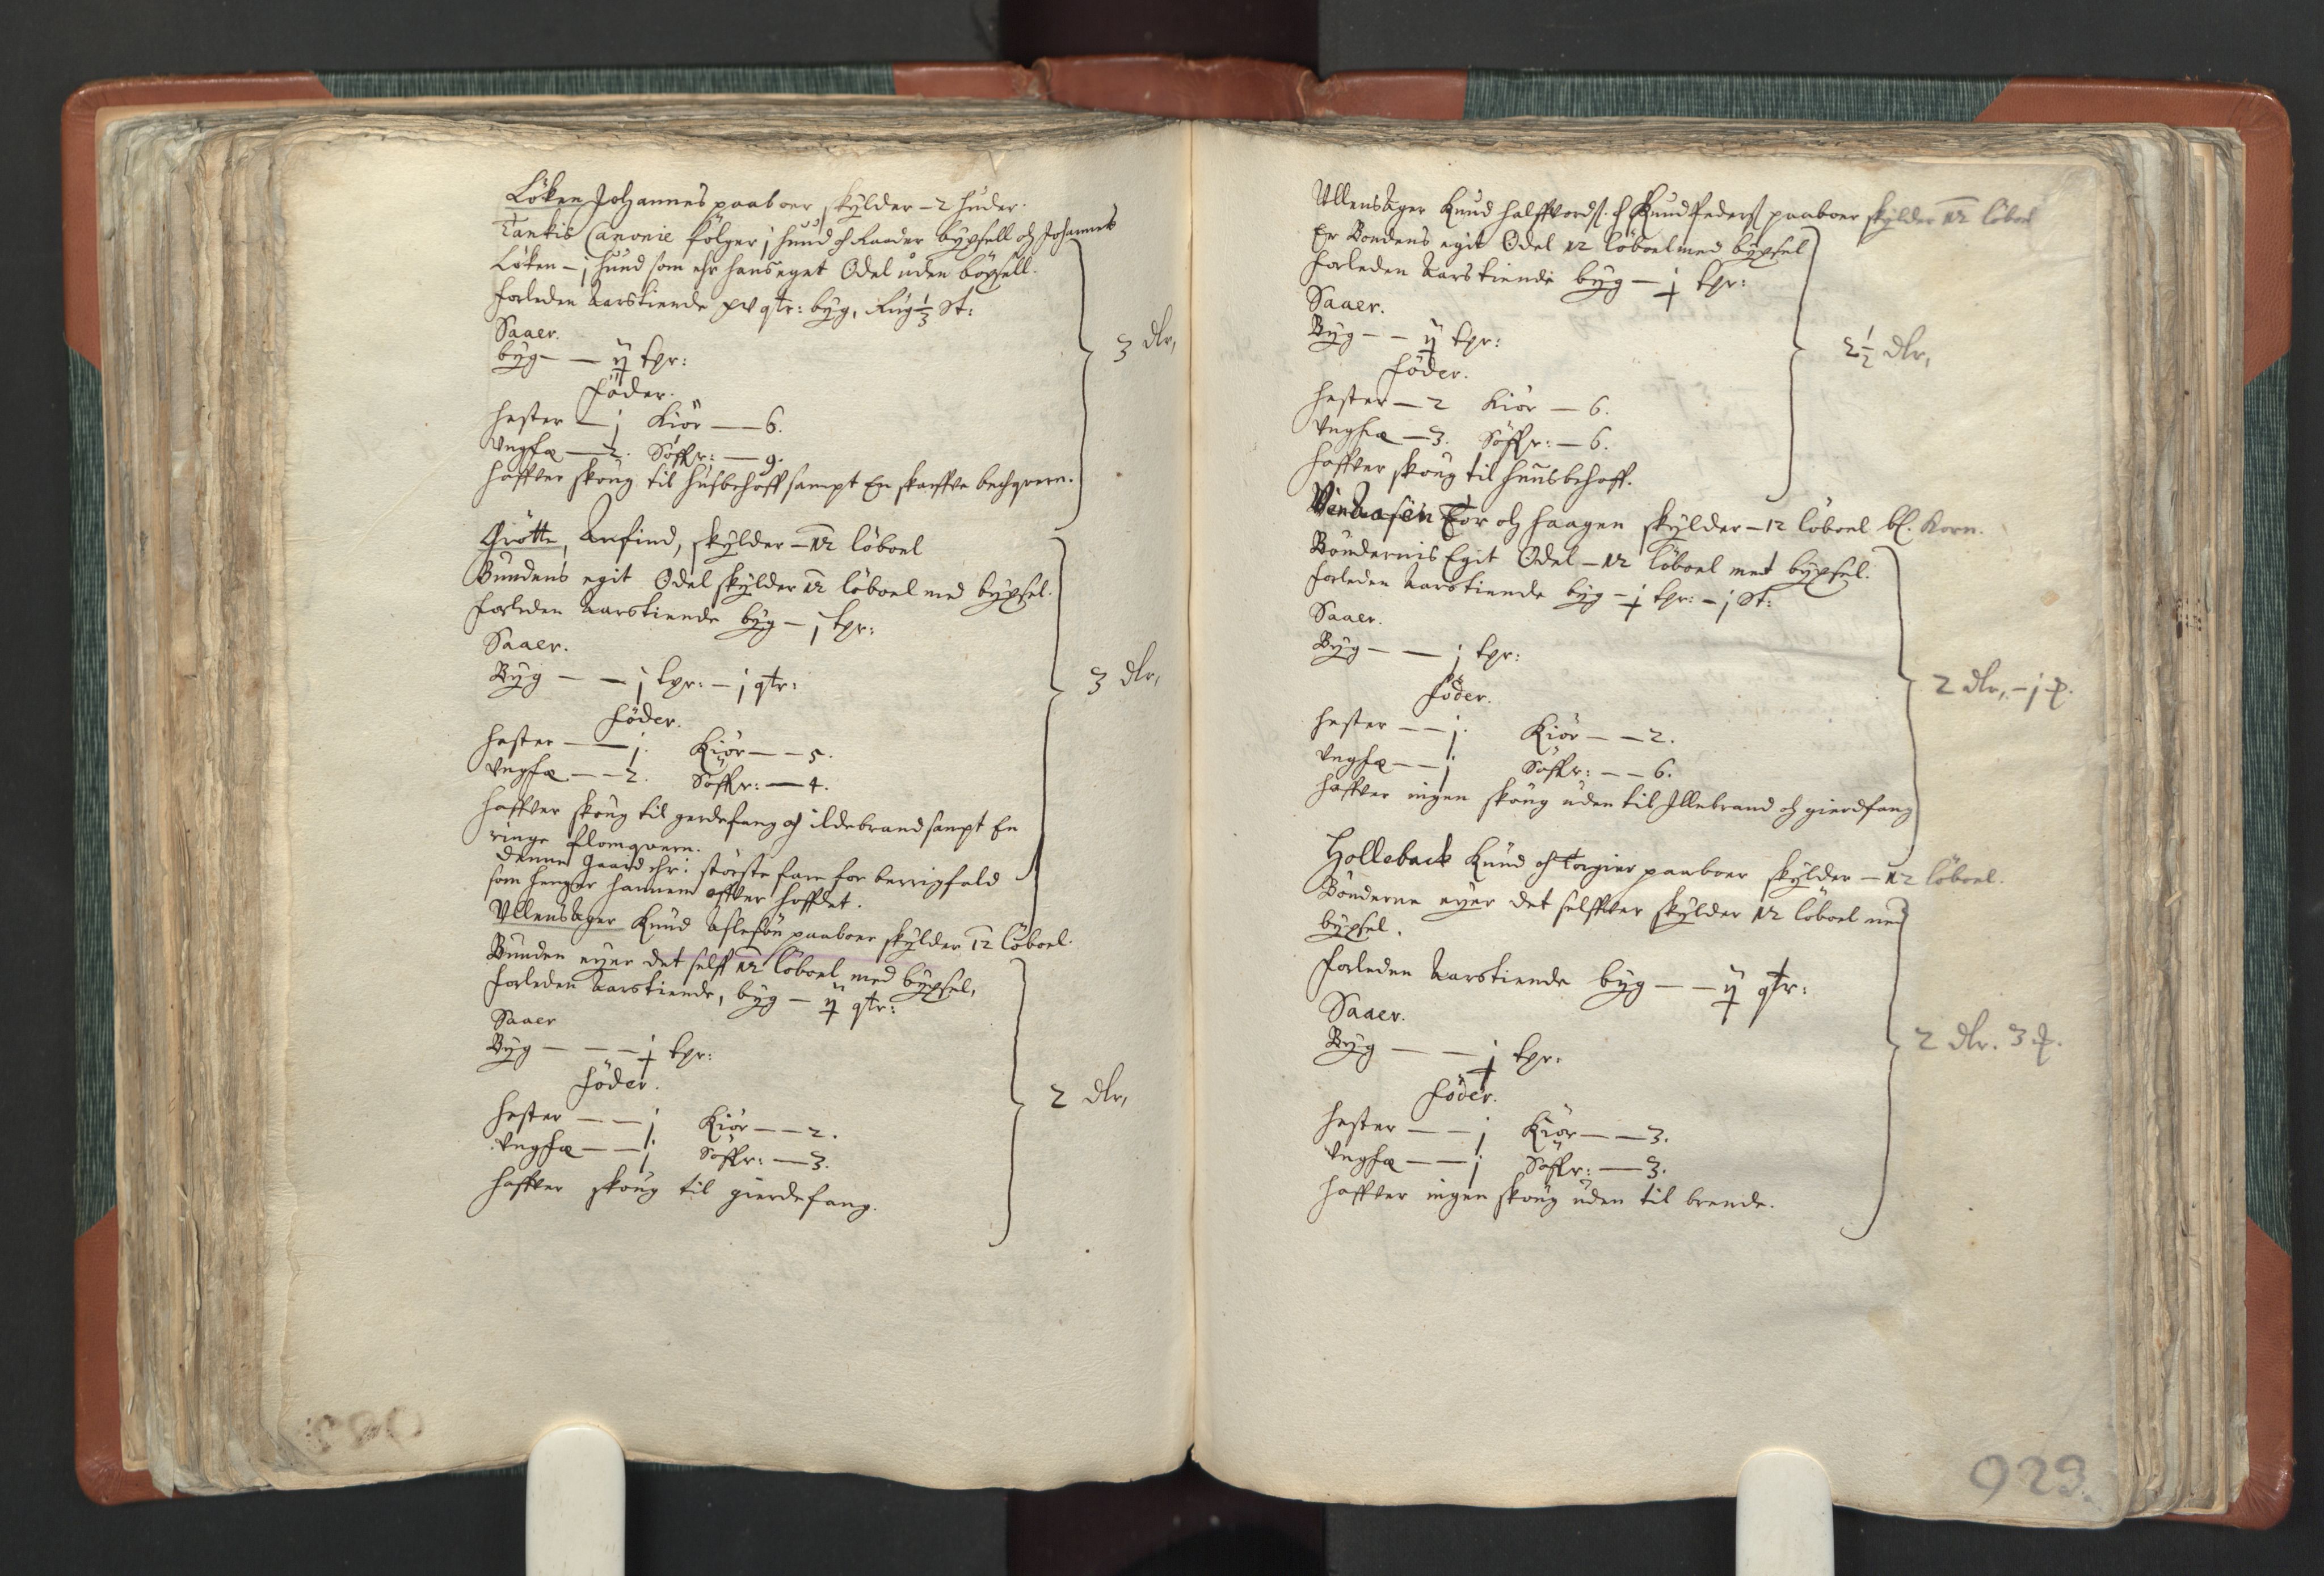 Löken Johannes paaboer skylder - 2 huder.
Tankis Canonie följer j huud och Raader bÿgsell oh Johannes
Löken - j huud som ehr hans eget Odel uden böxsell.
forleden Aarstiende xv qtr: bÿg, Rug 1/3 St:
Saaer.
bÿg - - ij tpr:
föder.
hester - j Kiör - - 6.
Ungfæ - 2. Söffr: - 9.
haffver skoug til husbehoff sampt En skarffve bechqvern.
3 dlr,
Grötte, Anfind, skylder - 12 löboel
Bundens egit Odel skylder 12 löboel med bÿgsel.
forleden Aarstiende bÿg - j tpr:
Saaer.
Bÿg - - j tpr: - j qtr:
föder.
hester - - j. Kiör - - 5.
Ungfæ - - 2. Söffr: - 4.
haffver skoug til gerdefang och ildebrand sampt En
ringe flomqvern.
denne Gaard ehr i störste fare for berrigfald
som henger hannem offver hoffdet.
3 dlr,
Ullensager Knud Aslesön paaboer skylder 12 löboel.
Bunden eyer det self 12 löboel med bÿgsel,
forleden Aarstiende, bÿg - ij qtr:
Saaer
Bÿg - - - j tpr:
föder.
hester - - j Kiör - - 2.
Ungfæ - - j. Söffr: - 3.
haffver skoug til gierdefang.
2 dlr,
Ullensager Knud halffvords. oc Knud Peders paaboer skylder 12 löboel
Er Bondens egit Odel 12 löboel med bÿgsel
forleden Aarstiende bÿg - j tpr:
Saaer.
Bÿg - - ij tpr:
föder.
hester - 2 Kiör - 6.
Ungfæ - 3. Söffr: - 6.
haffver skoug til huusbehoff.
2 1/2 dlr,
Tor oh Haagen skylder - 12 löboel bl. Korn.
Böndernis Egit Odel - 12 löboel met bÿgsel.
forleden Aarstiende bÿg - j tpr: - j St:
Saaer.
Bÿg - - j tpr:
föder.
hester - - j. Kiör - - 2.
Ungfæ - - j. Söffr: - - 6.
haffver ingen skoug uden til Illebrand oh gierdfang
2 dlr, - j
Holleback Knud och Torgier paaboer skylder - 12 löboel.
Bönderne eyer det selffver skylder 12 löboel med
bÿgsel.
forleden Aarstiende bÿg - - ij qtr:
Saaer.
Bÿg - - j tpr:
föder.
hester - - j Kiör - - 3.
Ungfæ - - j. Söffr: - 3.
haffver ingen skoug uden til brende.
2 dlr. 3
923.